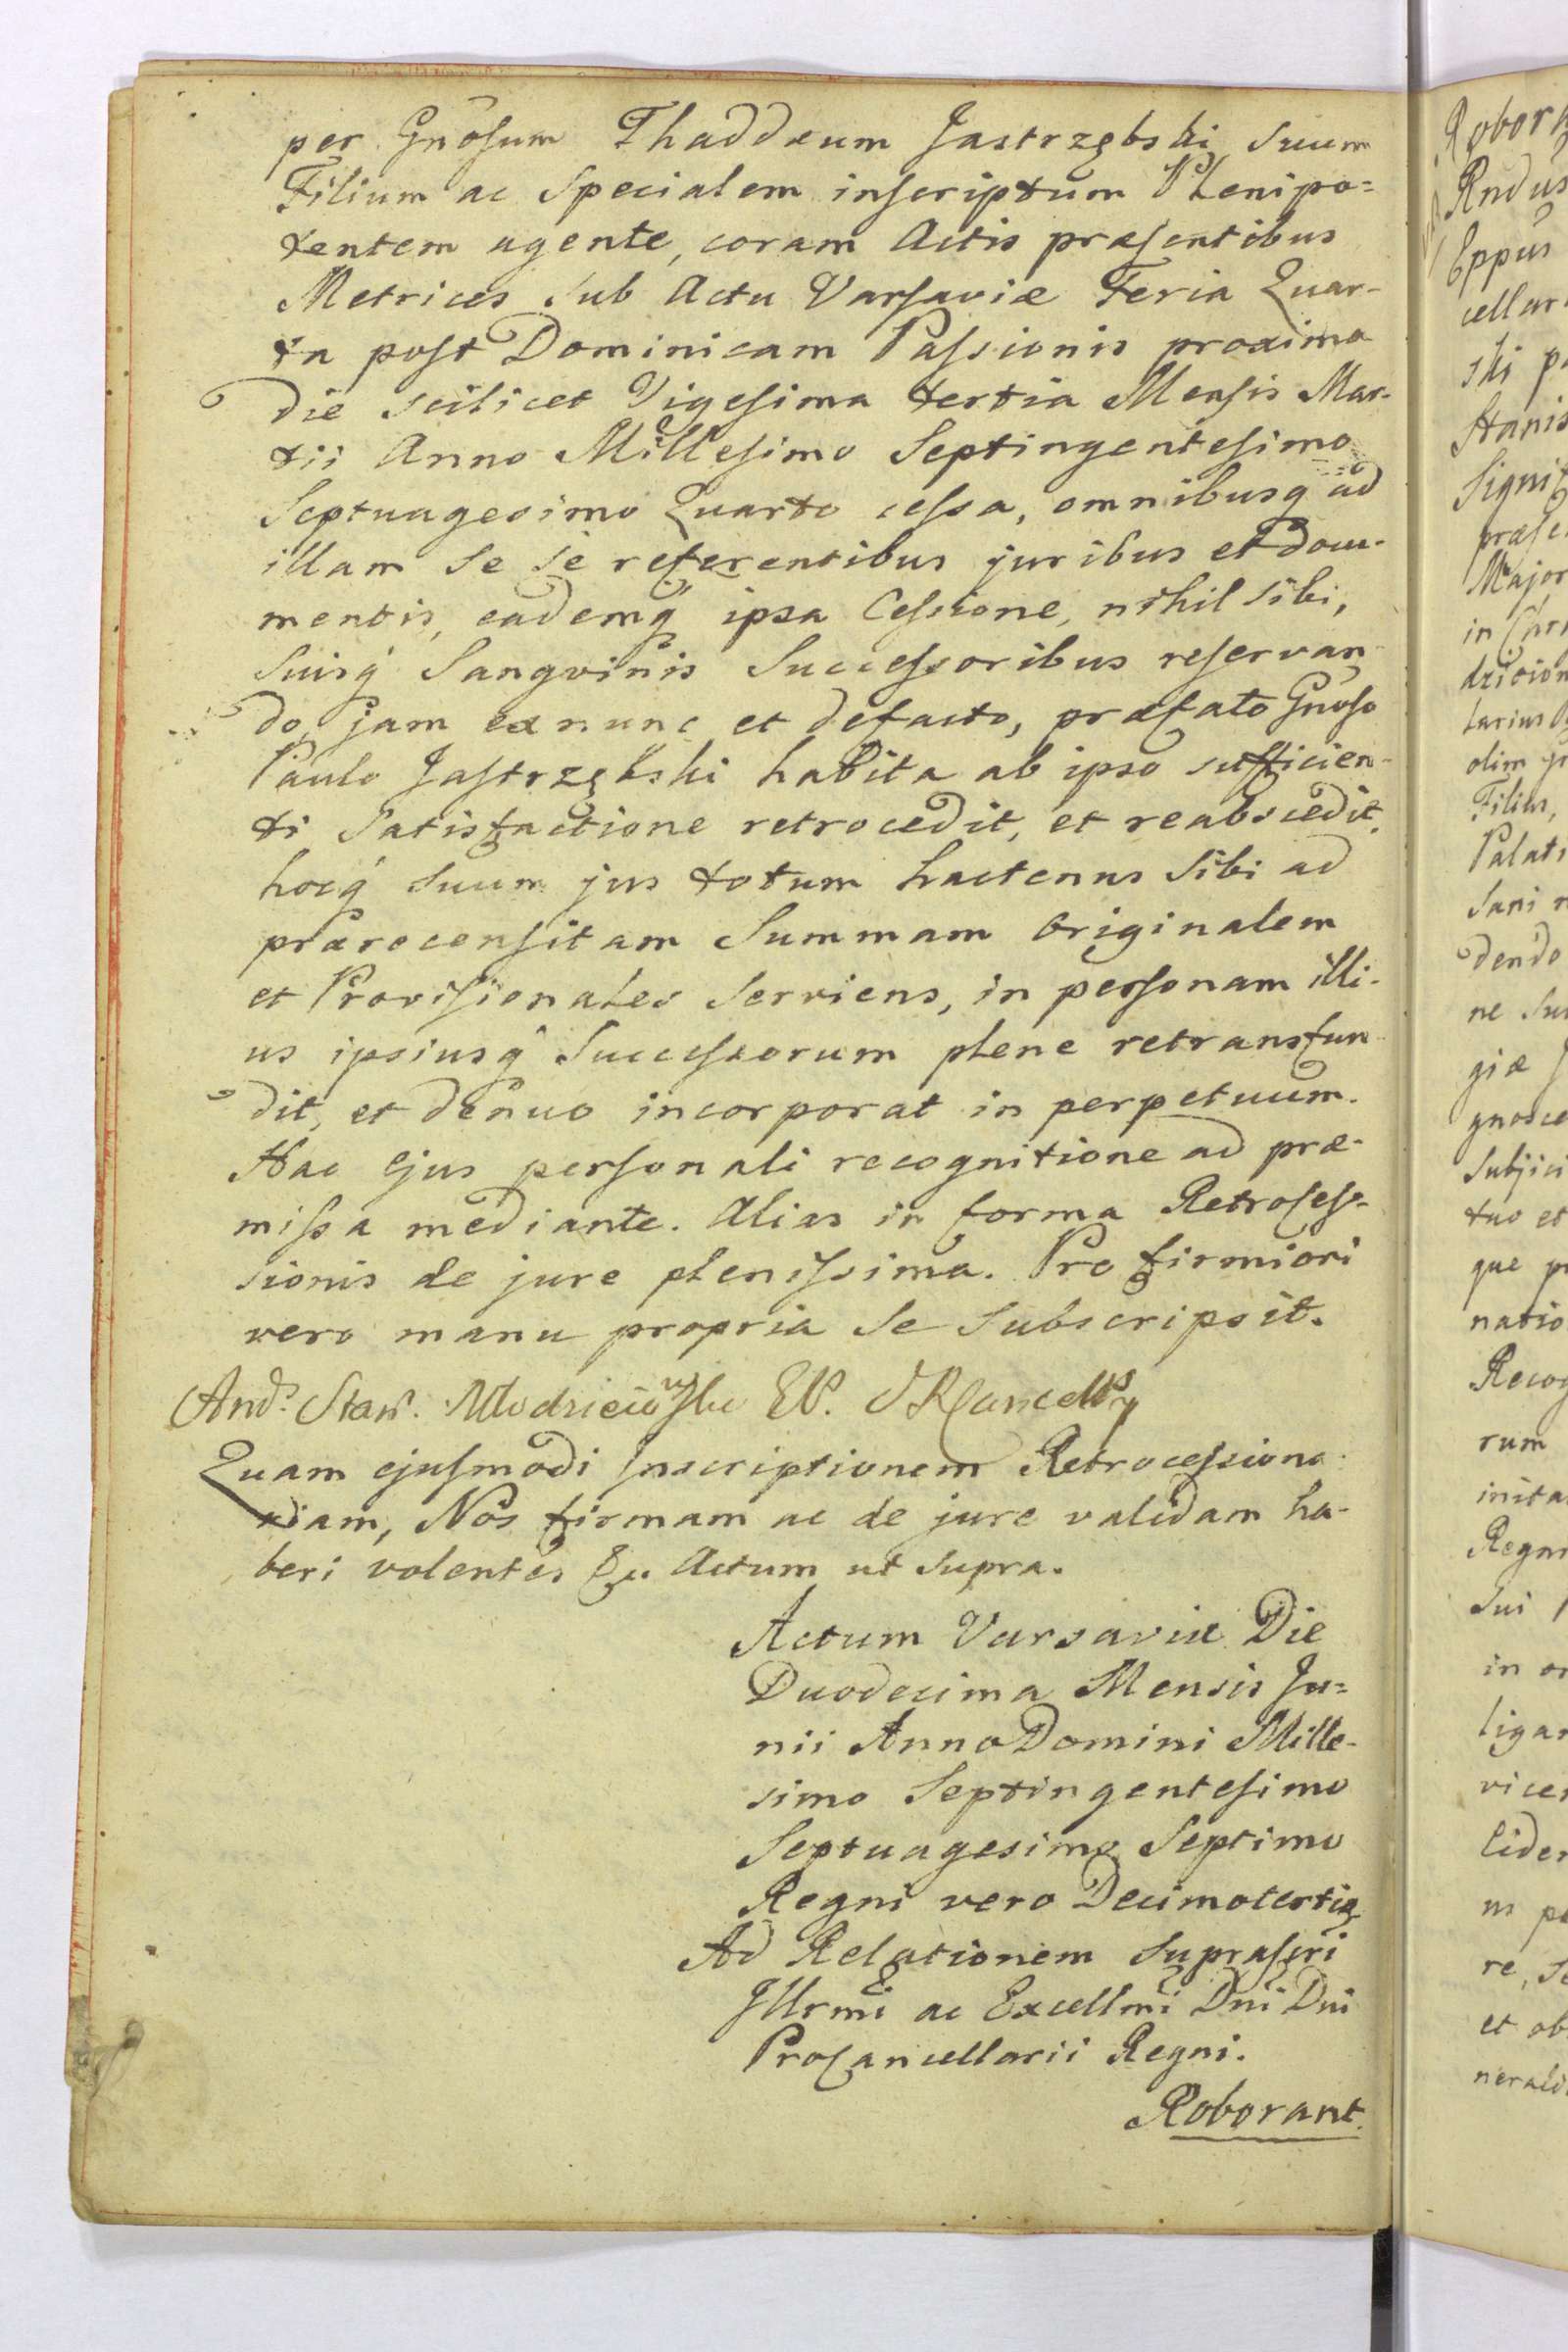 per Gnosum Thaddæum Jastrzębski suum
Filium ac Specialem inscriptum Plenipo=
tentem agente, coram Actis præsentibus
Metrices sub Actu Varsaviæ Feria Quar-
ta post Dominicam Passionis proxima
die scilicet Vigesima tertia Mensis Mar-
tii Anno Millesimo Septingentesimo
Septuagesimo Quarto cessa, omnibusq ad
illam se se referentibus juribus et docu-
mentis, eademq ipsa Cessione, nihil sibi,
suisq Sangvinis Successoribus reservan
do, jam ex nunc et defacto, præfato Gnoso
Paulo Jastrzębski habita ab ipso sufficien-
ti Satisfactione retrocedit, et reabscedit,
hocq suum jus totum hactenus sibi ad
prærecensitam Summam Originalem
et Provisionales serviens, in personam illi-
us ipsiusq Successorum plene retransfun
dit, et denuo incorporat in perpetuum.
Hac ejus personali recognitione ad præ-
missa mediante. Alias in forma Retroces-
sionis de jure plenissima. Pro firmiori
vero manu propria se subscripsit.
And. Stan. Młodzieiowski EP.
Quam ejusmodi Inscriptionem Retrocessiona
riam, Nos firmam ac de jure validam ha-
beri volentes &c. Actum ut supra.
Actum Varsaviæ Die
Duodecima Mensis Ju=
nii Anno Domini Mille-
simo Septingentesimo
Septuagesimo Septimo
Regni vero Decimotertio
Ad Relationem suprascri
Illrmi ac Excellmi Dni Dni
ProCancellarii Regni.
Roborant.
Rndus
Eppus
cellar
ski
Stanis
Signif
Major
in Chri
olim
Filius,
Palati
dendo
giæ
gnosce
subjici
tuo et
que
natio
Recog
rum
inita
Regni
sui
in
ligar
vicer
re,
et ob